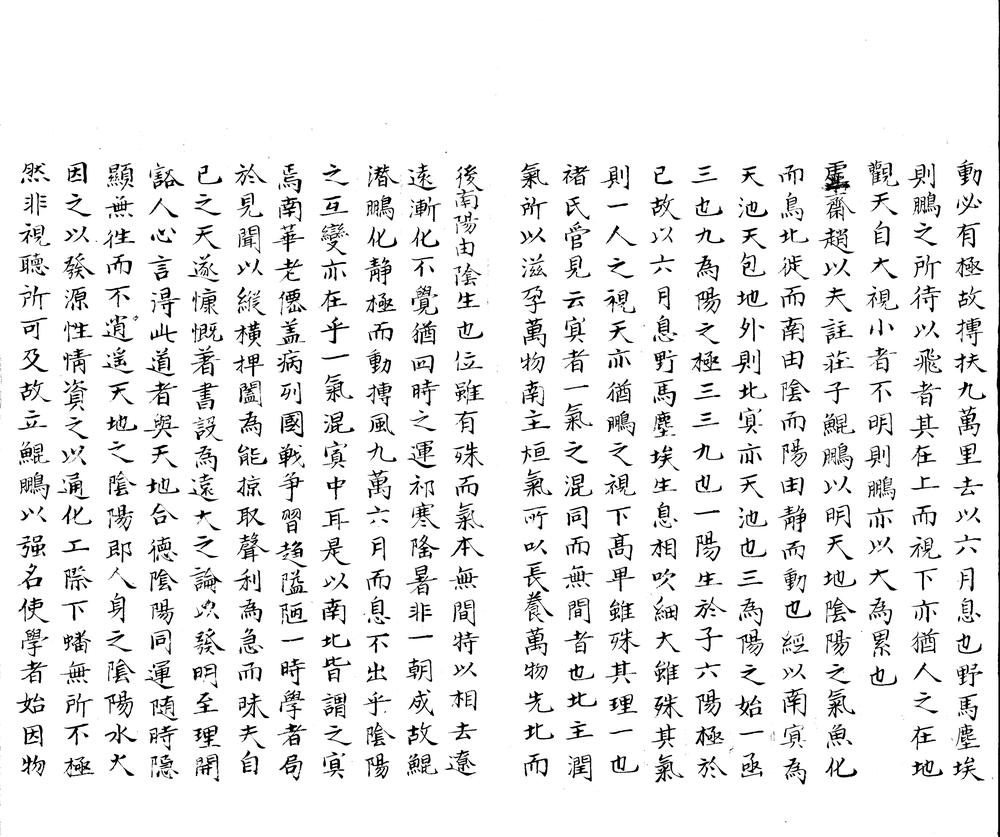 動必有極故摶扶九萬里去以六月息也野馬塵埃
則鵬之所待以飛者其在上而視下亦猶人之在地
觀天自大視小者不明則鵬亦以大為累也
虛齋趙以夫註莊子鯤鵬以明天地陰陽之氣魚化
而鳥北徙而南由陰而陽由静而動也經以南㝠為
天池天包地外則北㝠亦天池也三為陽之始一函
三也九為陽之極三三九也一陽生於子六陽極於
已故以六月息野馬塵埃生息相吹細大雖殊其氣
則一人之視天亦猶鵬之視下髙卑雖殊其理一也
禇氏管見云㝠者一氣之混同而無間者也北主潤
氣所以滋孕萬物南主烜氣所以長養萬物先北而
後南陽由陰生也位雖有殊而氣本無間特以相去遼
遠漸化不覺猶四時之運祁寒隆暑非一朝成故鯤
潛鵬化静極而動摶風九萬六月而息不出乎陰陽
之互變亦在乎一氣混㝠中耳是以南北皆謂之㝠
焉南華老僊盖病列國戰争習趨隘陋一時學者局
於見聞以縱橫捭闔為能掠取聲利為急而昧夫自
已之天遂慷慨著書設為遠大之論以發明至理開
豁人心言得此道者與天地合德陰陽同運随時隠
顯無徃而不逍遙天地之陰陽即人身之陰陽水火
因之以發源性情資之以通化上際下蟠無所不極
然非視聽所可及故立鯤鵬以强名使學者始因物